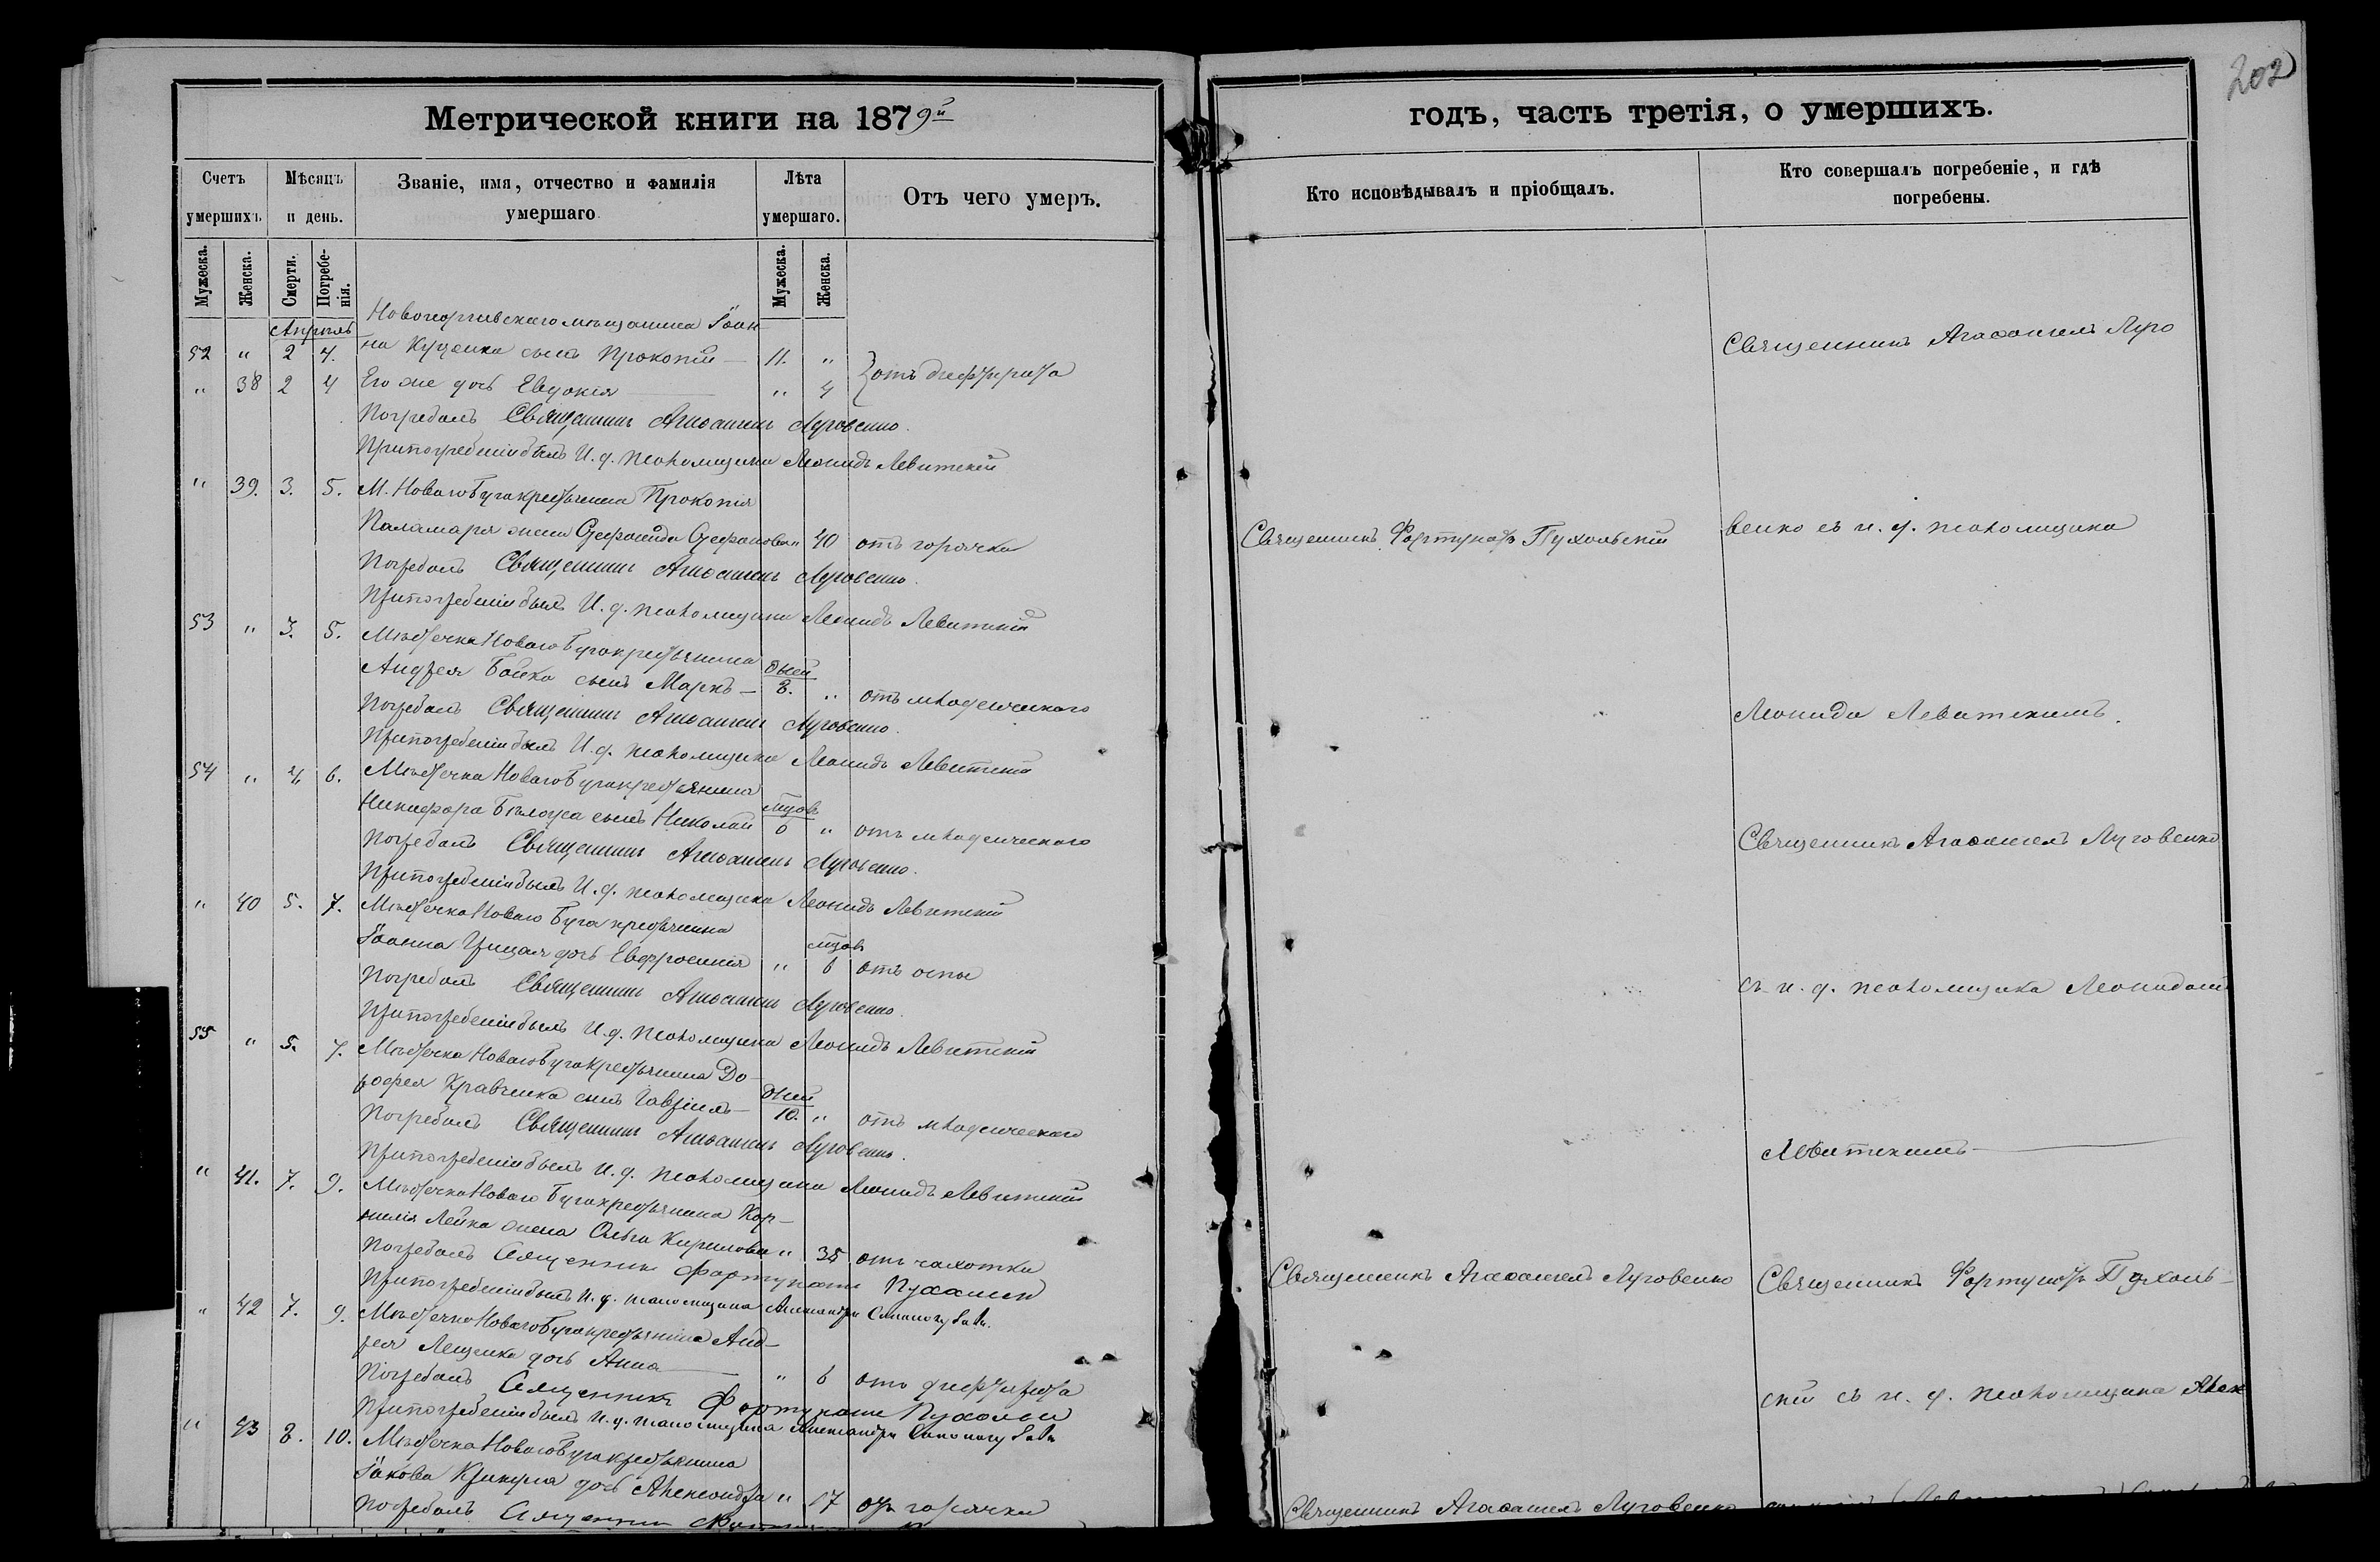 202
Метрической книги на 1879й
годъ, часть третія, о умершихъ.
Счетъ умершихъ.
Мѣсяцъ и день.
Званіе, имя, отчество и фамилія умершаго
Лѣта умершаго.
Отъ чего умеръ.
Кто исповѣдывалъ и пріобщалъ.
Кто совершалъ погребеніе, и гдѣ погребены.
Мужеска. Женска. Смерти. Погребенія. Мужеска. Женска.
Апрѣль
Новогеоргіевскаго мѣщанина Іоан
52 " 2 4. на Куценка сынъ Прокопій — 11. "
" 38 2 4 Его же дочь Евдокія " 4 } отъ дифтерита
Погребалъ Священникъ Агаѳангелъ Луговенко.
При погребеніи былъ И. д. псаломщика Леонидъ Левитскій
" 39. 3. 5. М. Новаго Буга крестьянина Прокопія
Паламаря жена Стефанида Стефанова " 40 отъ горячки
Погребалъ Священникъ Агаѳангелъ Луговенко.
При погребеніи былъ И. д. псаломщика Леонидъ Левитскій
53 " 3. 5. Мѣстечка Новаго Буга крестьянина
Андрея Бойко сынъ Маркъ — дней 8. " отъ младенческаго
Погребалъ Священникъ Агаѳангелъ Луговенко.
При погребеніи былъ И. д. псаломщика Леонидъ Левитскій
54 " 4 6. Мѣстечка Новаго Буга крестьянина
Никифора Бѣлоуса сынъ Николай мцов " отъ младенческаго
Погребалъ Священникъ Агаѳангелъ Луговенко.
При погребеніи былъ И. д. псаломщика Леонидъ Левитскій
" 40 5. 7. Мѣстечка Новаго Буга крестьянина
Іоанна дочь Евфросинія " мцов 6 отъ оспы
Погребалъ Священникъ Агаѳангелъ Луговенко.
При погребеніи былъ И. д. псаломщика Леонидъ Левитскій
55 " 5. 7. Мѣстечка Новаго Буга крестьянина До-
рофея Кравченка сынъ Гавріилъ — дней 10. " отъ младенческаго
Погребалъ Священникъ Агаѳангелъ Луговенко.
При погребеніи былъ И. д. псаломщика Леонидъ Левитскій
" 41. 7. 9. Мѣстечка Новаго Буга крестьянина Кор-
нилія Лейка жена Ольга Кирилова " 35 отъ чахотки
Погребалъ Священникъ Фортунатъ
При погребеніи былъ И. д. псаломщика Александръ
" 42 7. 9. Мѣстечка Новаго Буга крестьянина Анд-
рея Лещенка дочь Анна " 6 отъ дифтерита
Погребалъ Священникъ Фортунатъ
При погребеніи былъ И. д. псаломщика Александръ
" 43 8. 10. Мѣстечка Новаго Буга крестьянина
Іакова дочь Александра " 17 отъ горячки
Погребалъ Священникъ
Священникъ Агаѳангелъ Луго
Священникъ Фортунатъ Пухольскій
венко съ и. д. псаломщика
Леонидо Левитскимъ.
Священникъ Агаѳангелъ Луговенко
съ и. д. псаломщика Леонидомъ
Левитскимъ
Священникъ Агаѳангелъ Луговенко
Священникъ Фортунатъ Пухоль-
скій съ и. д. псаломщика Алек
Священникъ Агаѳангелъ Луговенко